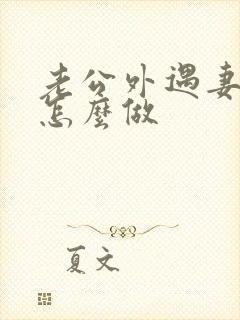 老公外遇妻
怎麼做
夏文